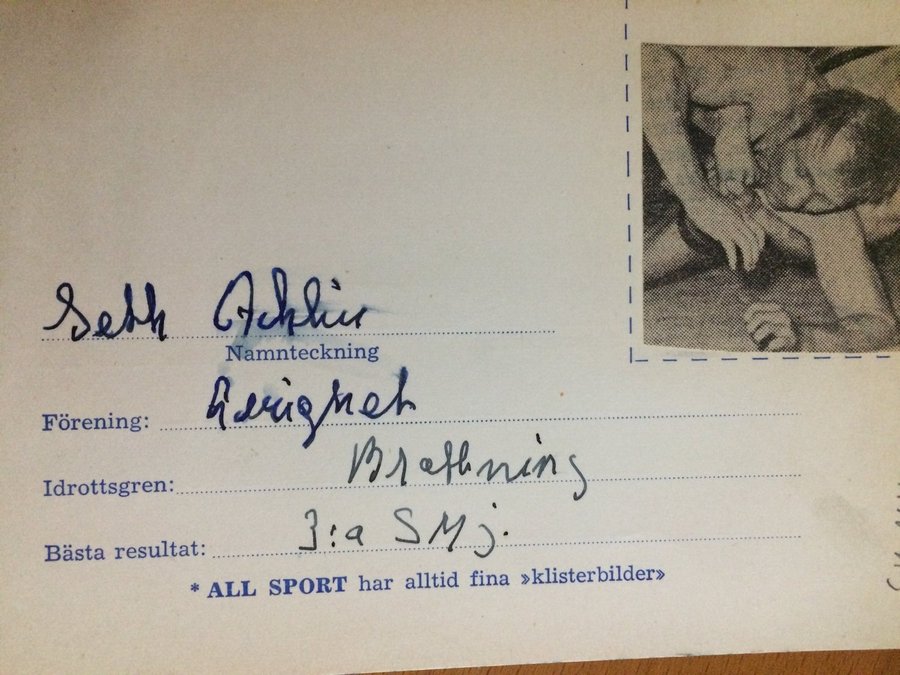 Seth
Namnteckning
Förening: Enighet
Idrottsgren: Brottning
Bästa resultat: 3:a SM j.
* ALL SPORT har alltid fina »klisterbilder»